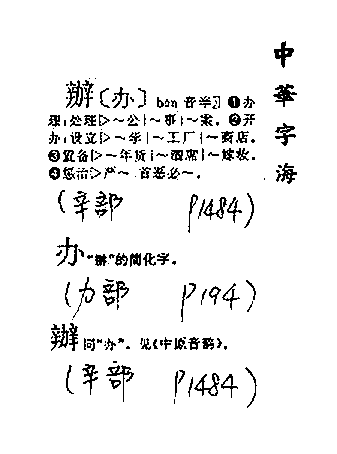 中華字海
辦〔办〕bàn 音半 ❶办
理;处理▷～公|～事|～案。❷开
办;设立▷～学|～工厂|～商店。
❸置备▷～年货|～酒席|～嫁妆。
❹惩治▷严～|首恶必～。
(辛部 P1484)
办 “辦”的简化字。
(力部 P194)
辦 同“办”。见《中原音韵》。
(辛部 P1484)